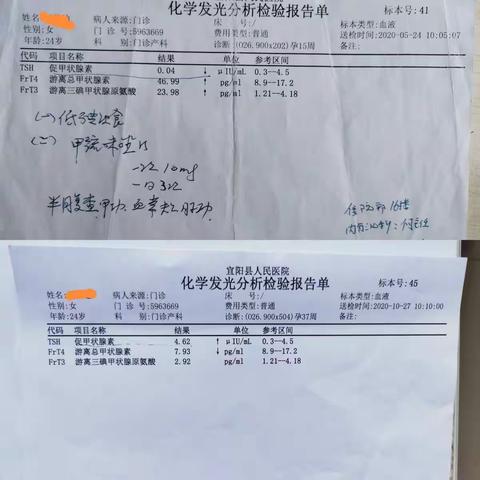 化学发光分析检验报告单 标本号:41
姓名: 病人来源:门诊 床 号:/ 标本类型:血液
性别:女 门 诊 号:5963669 费用类型:普通 送检时间:2020-05-24 10:05:07
年龄:24岁 科 别:门诊产科 诊断:(026.900x202)孕15周 备注:
代码 项目名称 结果 单位 参考区间
TSH 促甲状腺素 0.04 ↓ μIU/mL 0.3—4.5
FrT4 游离总甲状腺素 46.99 ↑ pg/ml 8.9—17.2
FrT3 游离三碘甲状腺原氨酸 23.98 ↑ pg/ml 1.21—4.18
(一)低碘饮食
(二) 甲巯咪唑片
一次10mg
一日3次
半月复查甲功 血常规 肝功
住院部16楼
宜阳县人民医院
化学发光分析检验报告单 标本号:45
姓名: 病人来源:门诊 床 号:/ 标本类型:血液
性别:女 门 诊 号:5963669 费用类型:普通 送检时间:2020-10-27 10:10:00
年龄:24岁 科 别:门诊产科 诊断:(026.900x504)孕37周 备注:
代码 项目名称 结果 单位 参考区间
TSH 促甲状腺素 4.62 ↑ μIU/mL 0.3—4.5
FrT4 游离总甲状腺素 7.93 ↓ pg/ml 8.9—17.2
FrT3 游离三碘甲状腺原氨酸 2.92 pg/ml 1.21—4.18